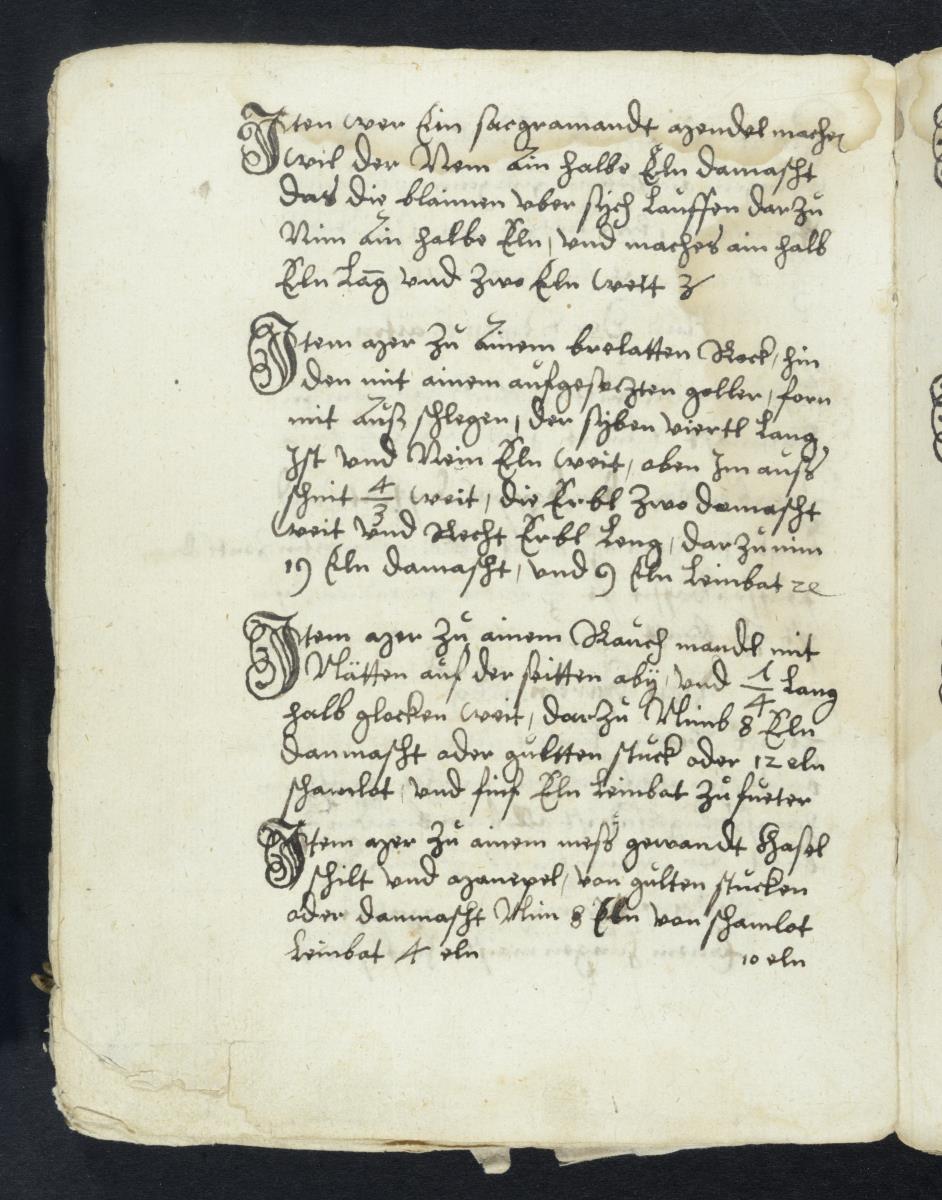 Iten wer Ein sacgramandt mendel machen
wil der Nem Ain halbe Eln damascht
das die blaimen vber sych Lauffen dar zu
Nim Ain halbe Eln, vnd maches ain halb
Eln Lag̅ vnd zwo Eln weit
Item mer zu Ainem brelatten Rock, hin
den mit ainem aufgesetzten goller, forn
mit Auß schlegen, der syben viertl Lang
Ist vnd Nein Eln weit, oben Im auß
schnit 4/3 weit, die Erbl zwo damascht
weit vnd Recht Erbl Leng, dar zu nim
19 Eln damascht, vnd 9 Eln Leinbat
Item mer zu ainem Rauch mandl mit
Nätten auf der seitten abÿ, vnd 1/4 Lang
halb glocken weit, dar zu Nimb 8 Eln
danmascht oder gultten stuck oder 12 eln
schamlot, vnd finf Eln Leinbat zu fueter
Item mer zu ainem meß gewandt Khasel
schilt vnd manepel, von gulten stucken
oder danmascht Nim 8 Eln von schamlot
Leinbat 4 eln 10 eln